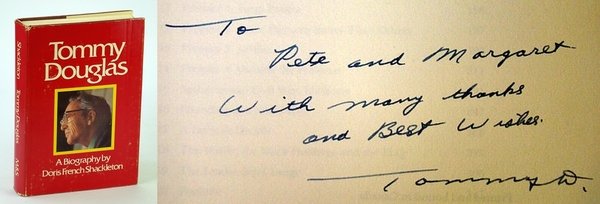 Shackleton
Tommy Douglas
M&S
Tommy
Douglas
A Biography by
Doris French Shackleton
To
Pete and Margaret
With many thanks
and Best Wishes.
Tommy D.